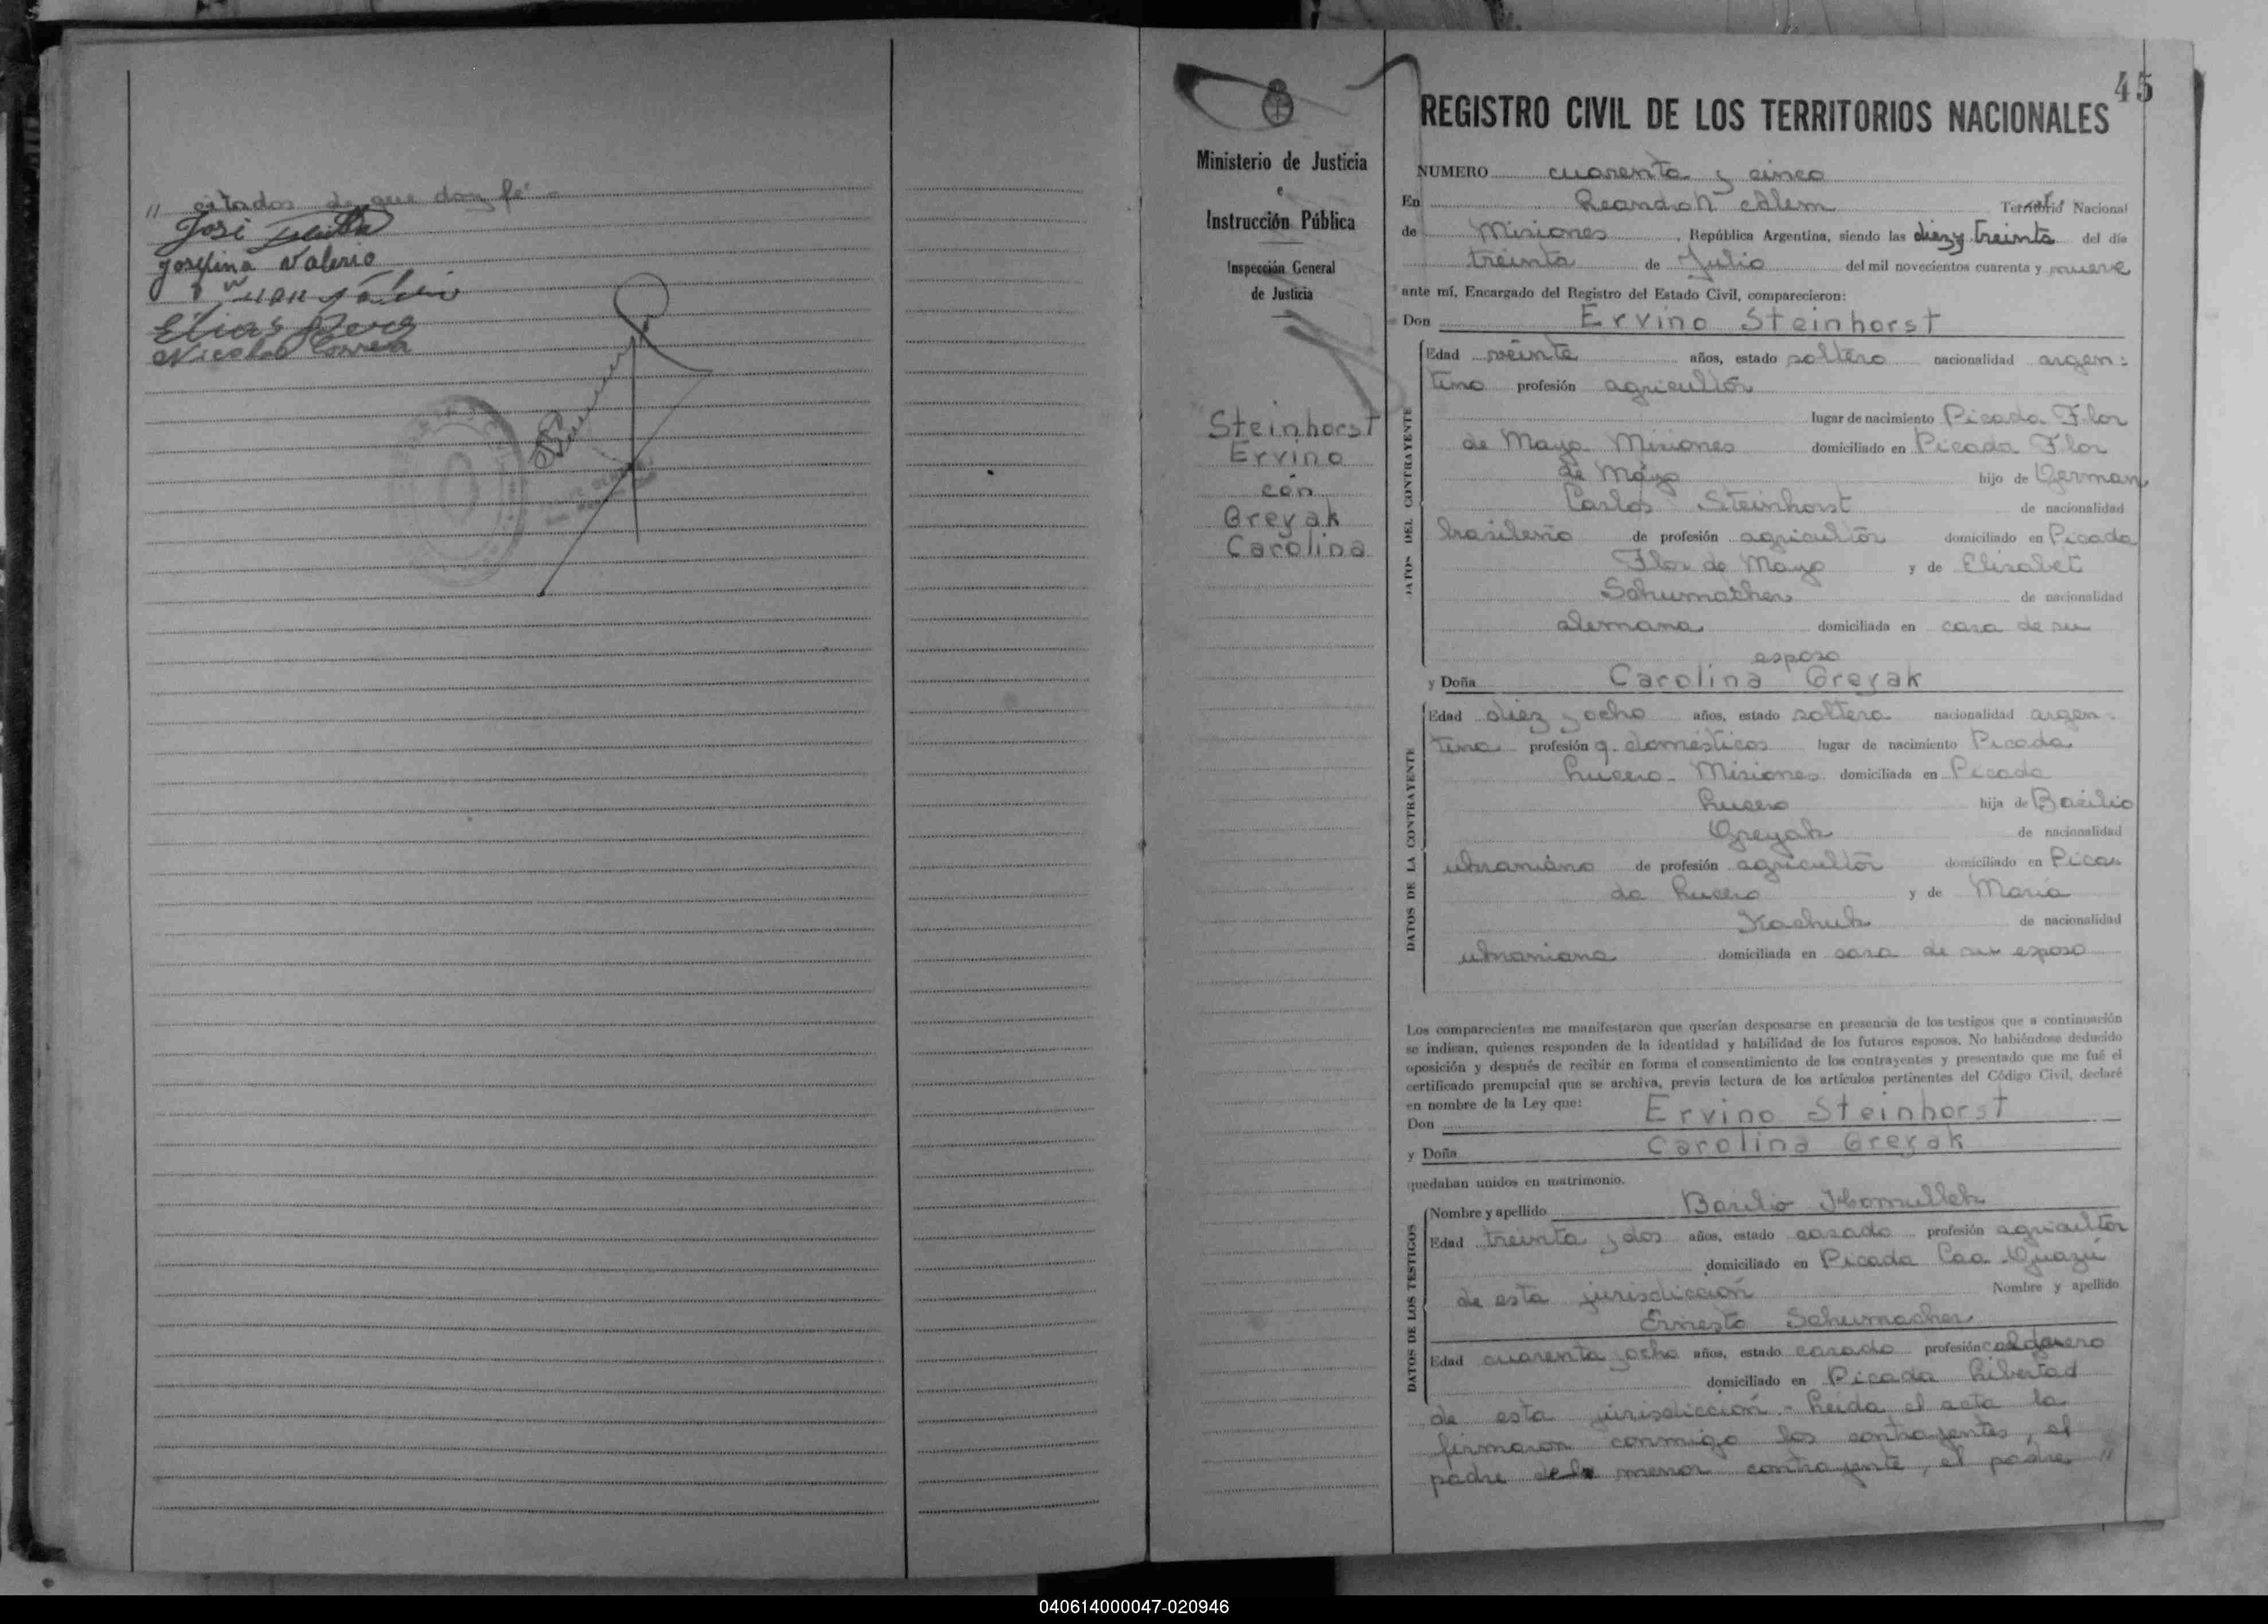 " citados de que doy fé -
José
Josefina Valerio
Elias
Nicolas Correa
45
Ministerio de Justicia
e
Instrucción Pública
Inspección General
de Justicia
Steinhorst
Ervino
con
Greyak
Carolina
REGISTRO CIVIL DE LOS TERRITORIOS NACIONALES
NUMERO cuarenta y cinco
En Leandro N. Alem Territorio Nacional
de Misiones, República Argentina, siendo las diez y treinta del día
treinta de Julio del mil novecientos cuarenta y nueve
ante mí, Encargado del Registro del Estado Civil, comparecieron:
Don Ervino Steinhorst
DATOS DEL CONTRAYENTE
Edad veinte años, estado soltero nacionalidad argen=
tino profesión agricultor
lugar de nacimiento Picada Flor
de Mayo Misiones domiciliado en Picada Flor
de Mayo hijo de German
Carlos Steinhorst de nacionalidad
brasileño de profesión agricultor domiciliado en Picada
Flor de Mayo y de Elisabet
Schumacher de nacionalidad
alemana domiciliada en casa de su
esposo
y Doña Carolina Greyak
DATOS DE LA CONTRAYENTE
Edad diez y ocho años, estado soltera nacionalidad argen-
tina profesión q. domésticos lugar de nacimiento Picada
Lucero - Misiones domiciliada en Picada
Lucero hija de Basilio
Greyak de nacionalidad
ukraniano de profesión agricultor domiciliado en Pica
da Lucero y de Maria
Kachuk de nacionalidad
ukraniana domiciliada en casa de su esposo
Los comparecientes me manifestaron que querían desposarse en presencia de los testigos que a continuación
se indican, quienes responden de la identidad y habilidad de los futuros esposos. No habiéndose deducido
oposición y después de recibir en forma el consentimiento de los contrayentes y presentado que me fué el
certificado prenupcial que se archiva, previa lectura de los artículos pertinentes del Código Civil, declaré
en nombre de la Ley que:
Don Ervino Steinhorst
y Doña Carolina Greyak
quedaban unidos en matrimonio.
DATOS DE LOS TESTIGOS
Nombre y apellido Basilio
Edad treinta y dos años, estado casado profesión agricultor
domiciliado en Picada Caa-Guazú
de esta jurisdicción Nombre y apellido
Ernesto Schumacher
Edad cuarenta y ocho años, estado casado profesión calderero
domiciliado en Picada Libertad
de esta jurisdicción.- Leida el acta la
firmaron conmigo los contrayentes, el
padre de la menor contrayente, el padre "
040614000047-020946